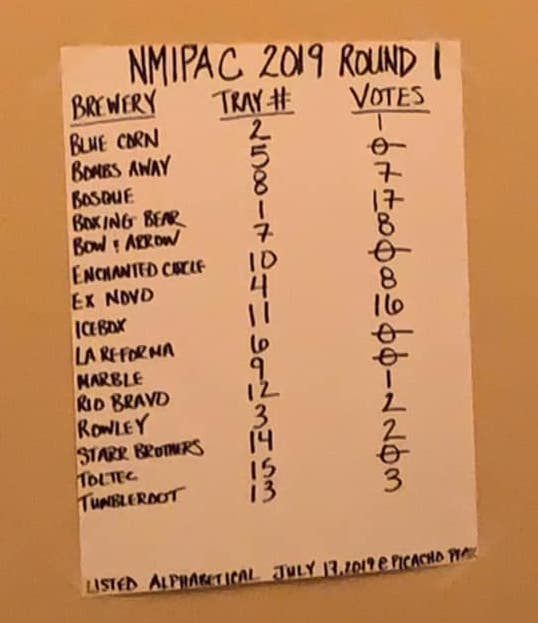 NMIPAC 2019 ROUND 1
BREWERY TRAY # VOTES
BLUE CORN 2 1
BOMBS AWAY 5 0
BOSQUE 8 7
BOXING BEAR 1 17
BOW & ARROW 7 8
ENCHANTED CIRCLE 10 0
EX NOVO 4 8
ICEBOX 11 16
LA REFORMA 6 0
MARBLE 9 0
RIO BRAVO 12 1
ROWLEY 3 2
STARR BROTHERS 14 2
TOLTEC 15 0
TUMBLEROOT 13 3
LISTED ALPHABETICAL JULY 17, 2019 @ PICACHO PEAK